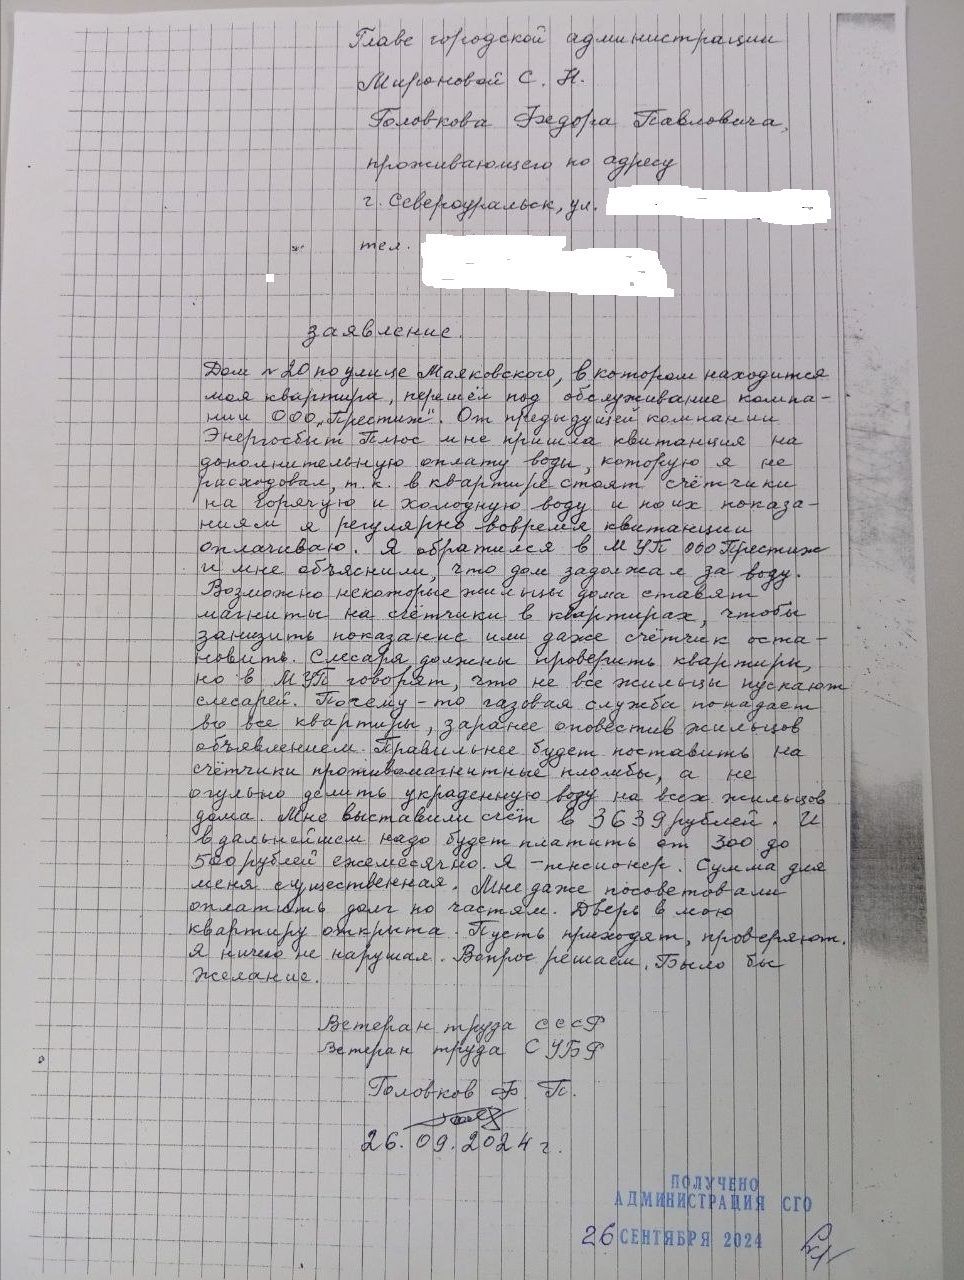 Главе городской администрации
Мироновой С. Н.
Головкова Фёдора Павловича,
проживающего по адресу
г. Североуральск, ул.
тел.
заявление.
Дом №20 по улице Маяковского, в котором находится
моя квартира, перешёл под обслуживание компа-
нии ООО „Престиж". От предыдущей компании
Энергосбыт Плюс мне пришла квитанция на
дополнительную оплату воды, которую я не
расходовал, т.к. в квартире стоят счётчики
на горячую и холодную воду и по их показа-
ниям я регулярно вовремя квитанции
оплачиваю. Я обратился в МУП ООО Престиж
и мне объяснили, что дом задолжал за воду.
Возможно некоторые жильцы дома ставят
магниты на счётчики в квартирах, чтобы
занизить показание или даже счётчик оста-
новить. Слесаря должны проверить квартиры,
но в МУП говорят, что не все жильцы пускают
слесарей. Почему-то газовая служба попадает
во все квартиры, заранее оповестив жильцов
объявлением. Правильнее будет поставить на
счётчики противомагнитные пломбы, а не
огульно делить украденную воду на всех жильцов
дома. Мне выставили счёт в 3639 рублей. И
в дальнейшем надо будет платить от 300 до
500 рублей ежемесячно. Я - пенсионер. Сумма для
меня существенная. Мне даже посоветовали
оплатить долг по частям. Дверь в мою
квартиру открыта. Пусть приходят, проверяют.
Я ничего не нарушал. Вопрос решаем. Было бы
желание.
Ветеран труда СССР
Ветеран труда СУБР
Головков Ф. П.
26.09.2024 г.
ПОЛУЧЕНО
АДМИНИСТРАЦИЯ СГО
26 СЕНТЯБРЯ 2024